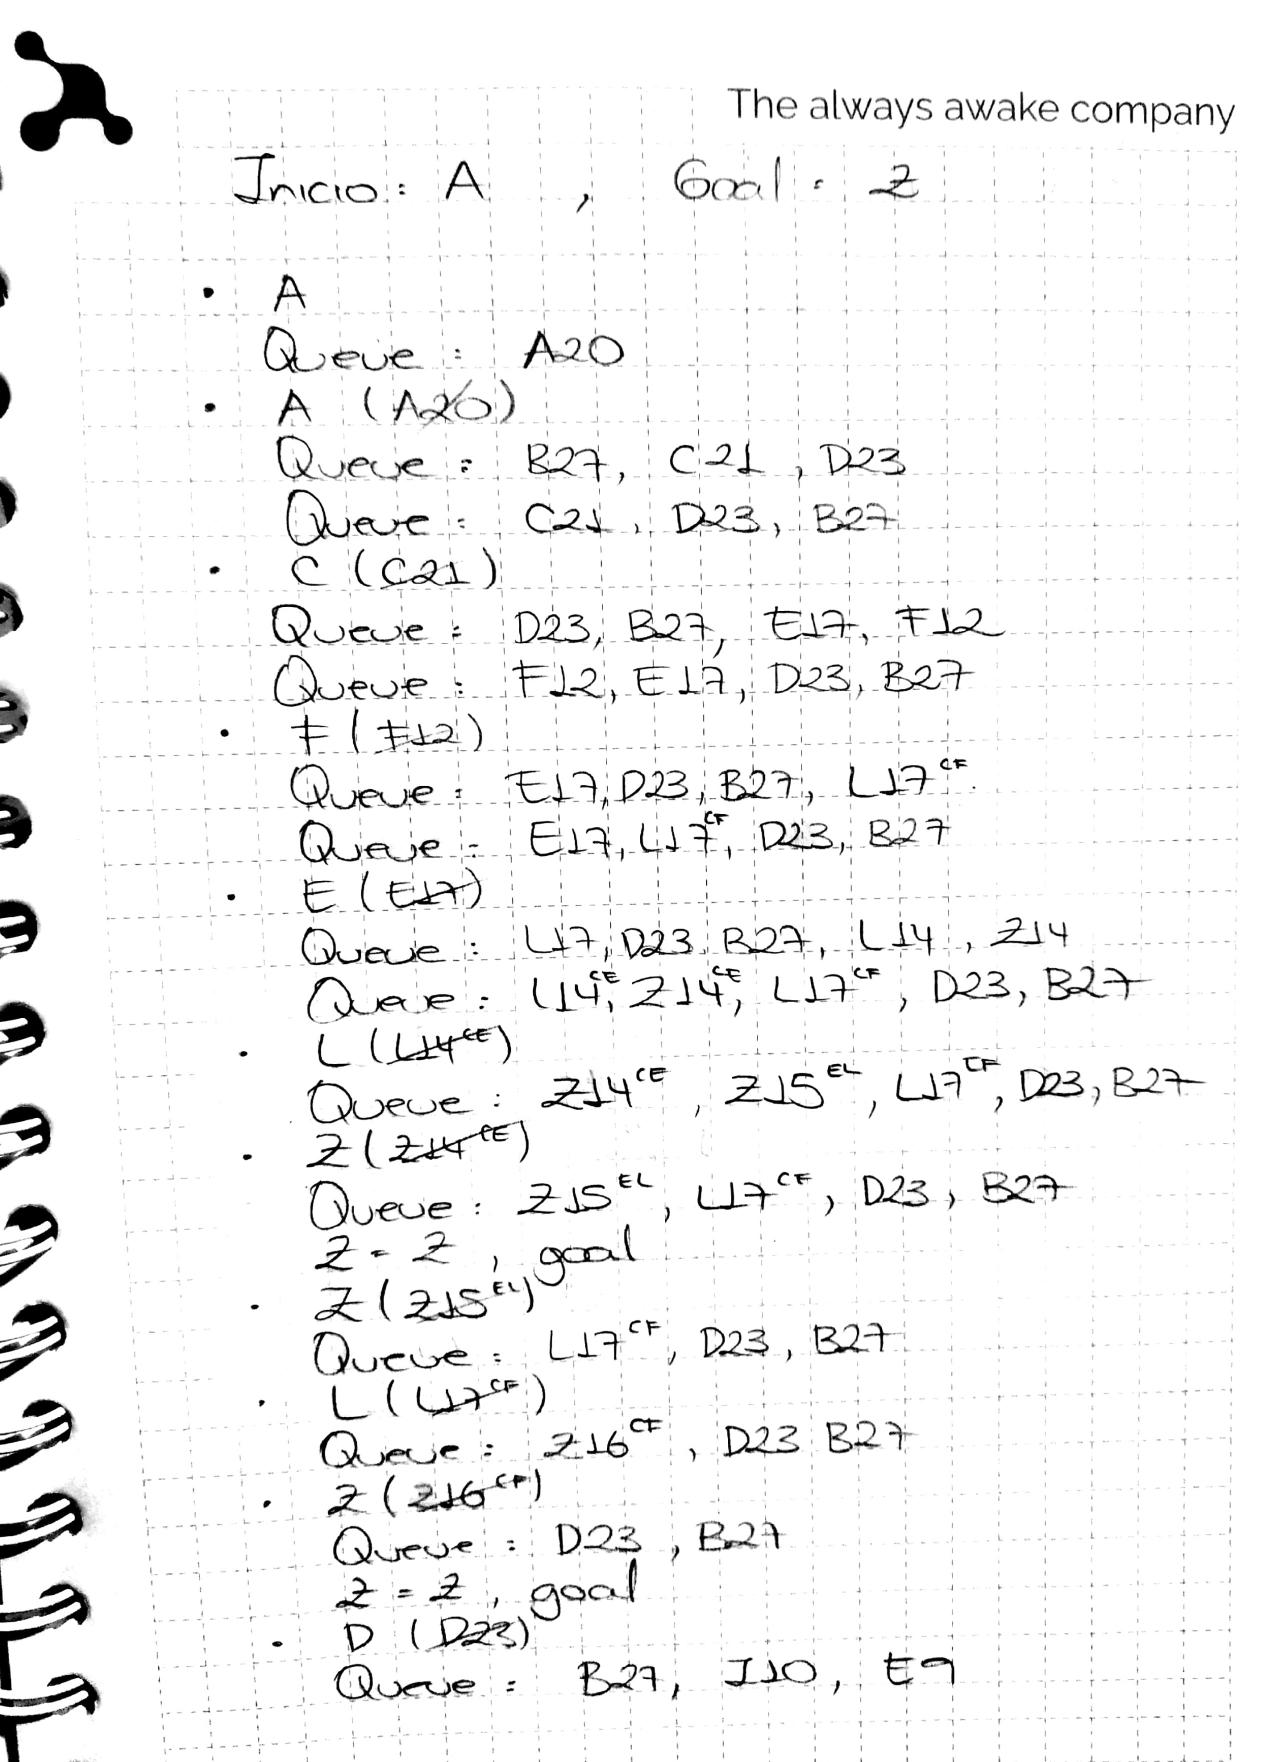 The always awake company
Inicio: A , Goal: Z
• A
Queue: A20
• A (A20)
Queue: B27, C21, D23
Queue: C21, D23, B27
• C (C21)
Queue: D23, B27, E17, F12
Queue: F12, E17, D23, B27
• F (F12)
Queue: E17, D23, B27, L17^CF
Queue: E17, L17^CF, D23, B27
• E (E17)
Queue: L17, D23, B27, L14, Z14
Queue: L14^CE, Z14^CE, L17^CF, D23, B27
• L (L14^CE)
Queue: Z14^CE, Z15^EL, L17^CF, D23, B27
• Z (Z14^CE)
Queue: Z15^EL, L17^CF, D23, B27
Z = Z, goal
• Z (Z15^EL)
Queue: L17^CF, D23, B27
• L (L17^CF)
Queue: Z16^CF, D23 B27
• Z (Z16^CF)
Queue: D23, B27
Z = Z, goal
• D (D23)
Queue: B27, I10, E9